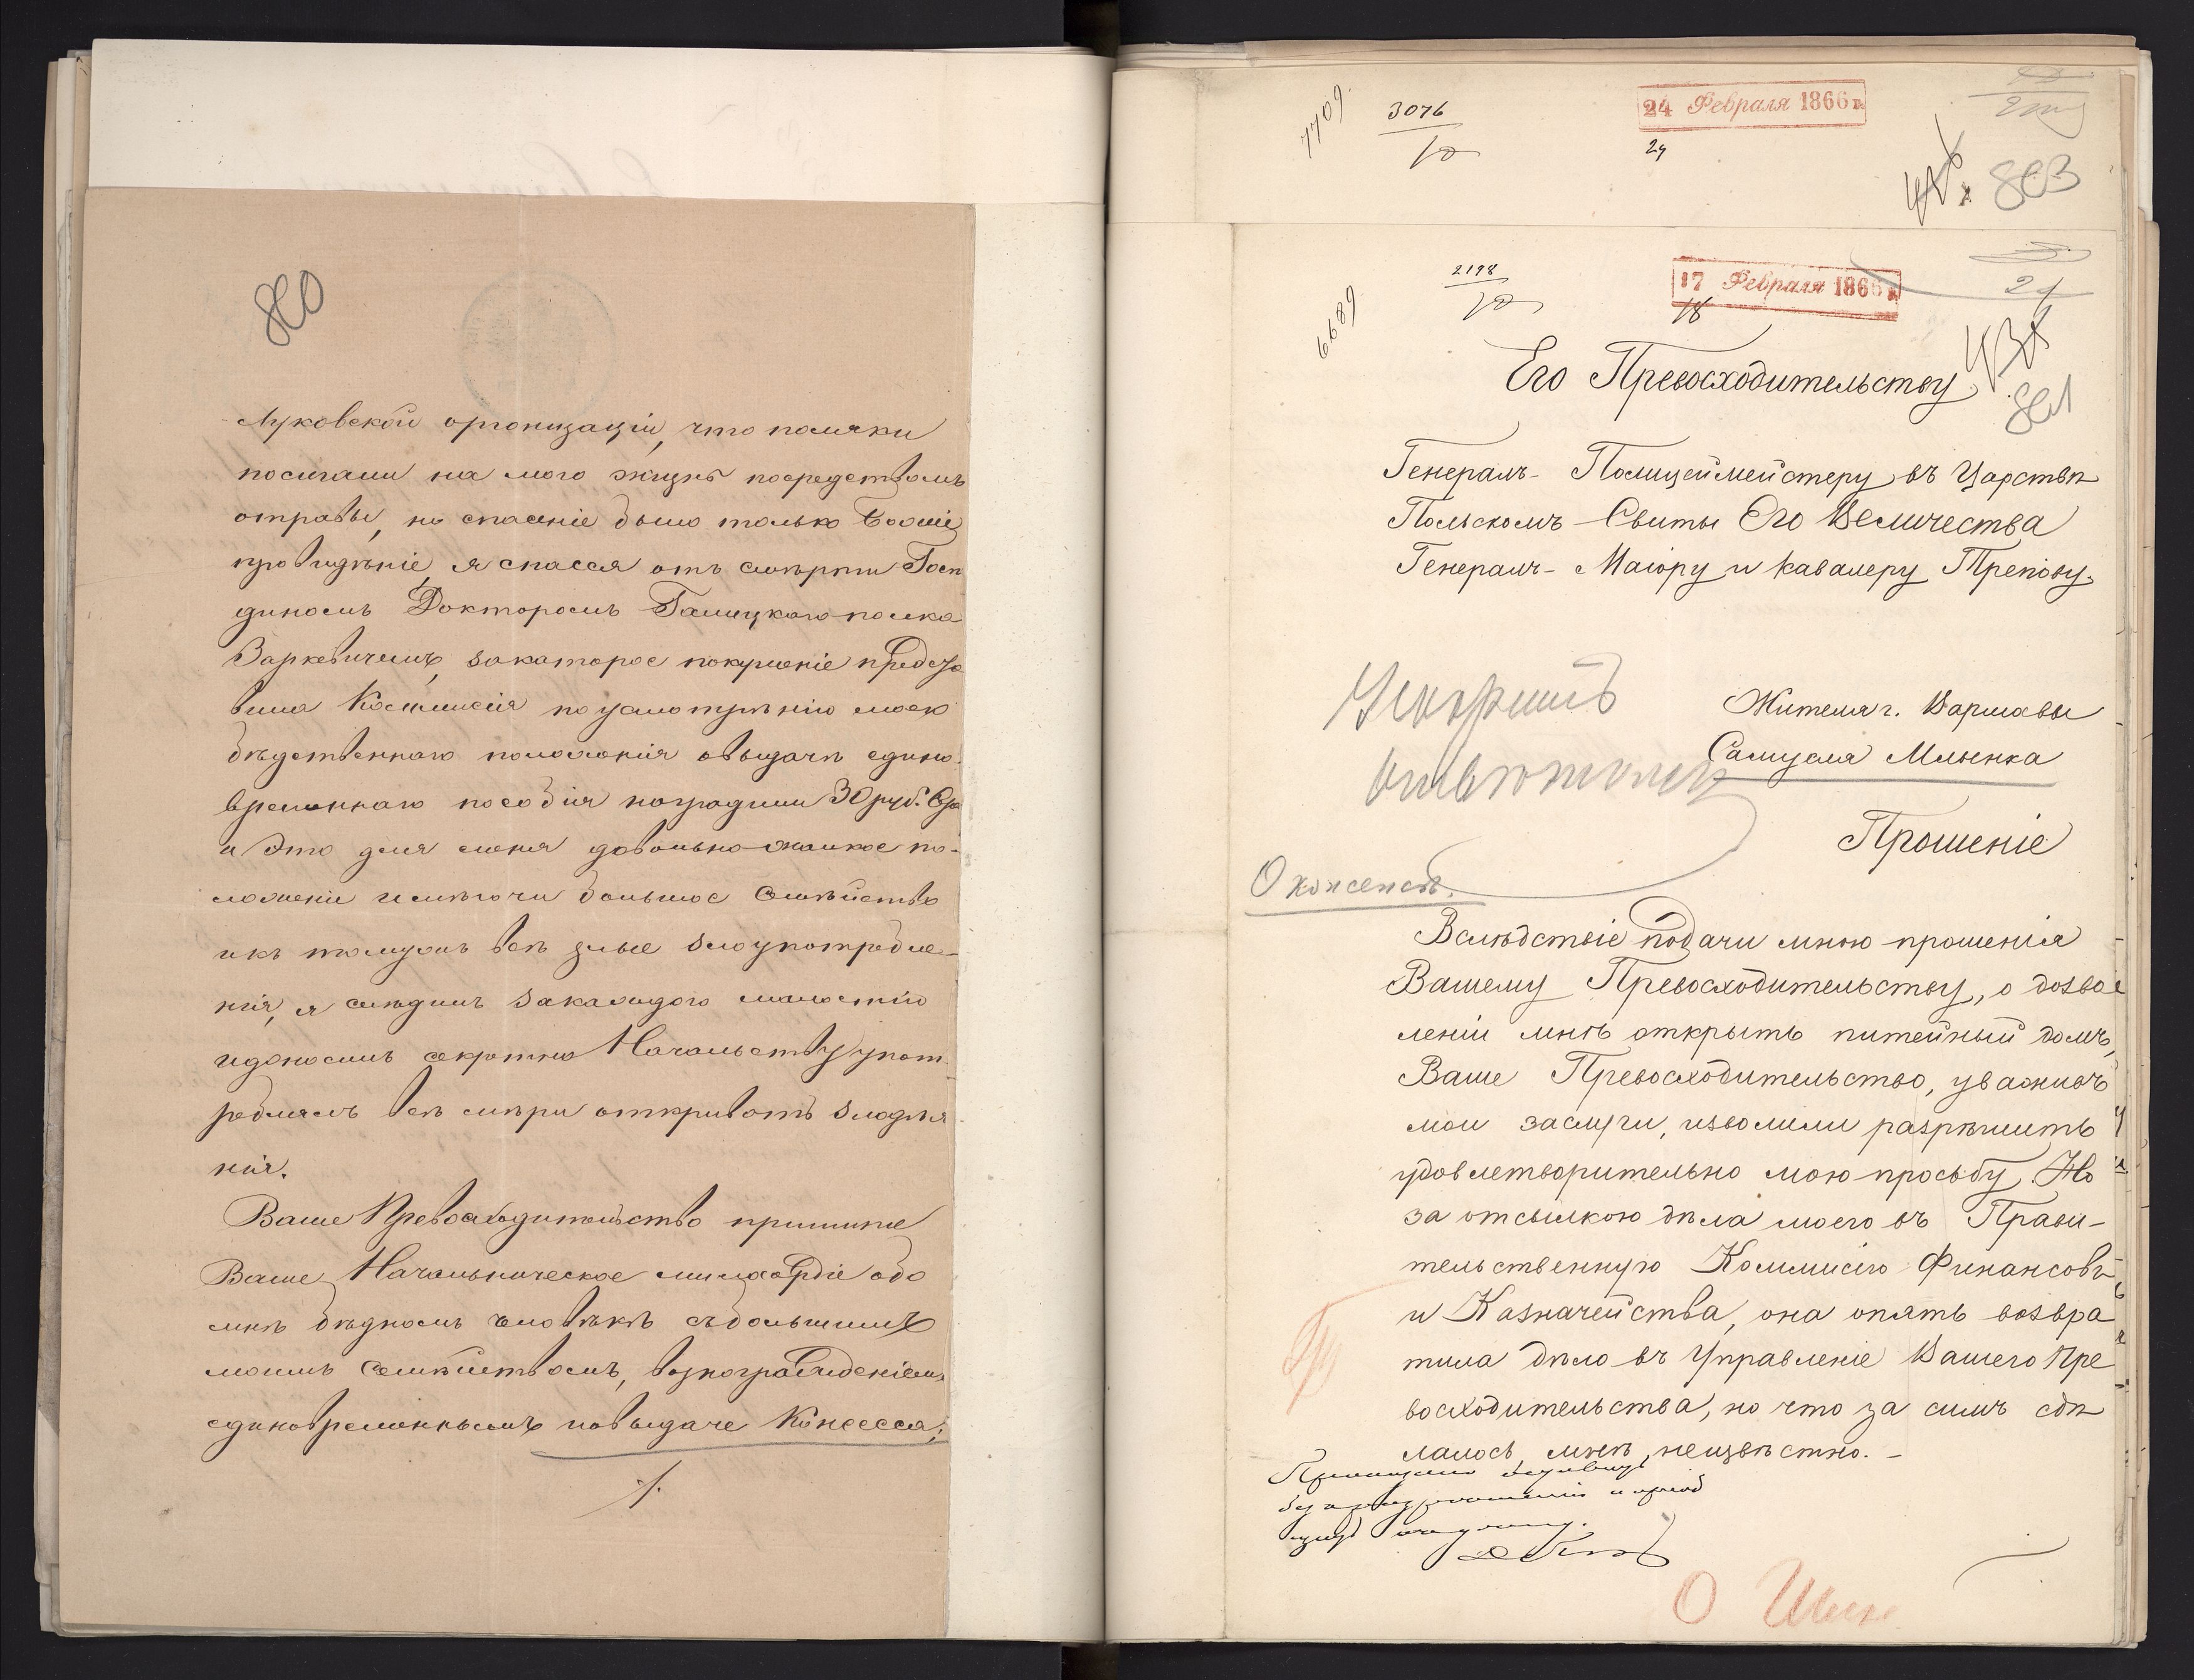 860
Луковской оргонизаціи, что поляки
посигали на мого жизнь посредствомъ
отравы, но спасеніе было только Божіе
провидѣніе, я спасся отъ смѣрти Госп
диномъ Докторомъ Галицкого полка
Заркевичемъ, закаторое покушеніе предста
вила Коммисія поусмотрѣнію моего
бѣдственнаго положенія овыдачѣ едино-
временнаго пособія наградили 30 руб. Сер
и Это для меня довольно жалкое по-
ложеніи имѣючи большое Семѣйство
икъ томужъ всѣ злые злоупотребле-
нія, я слѣдилъ закаждого малостію
идоносилъ секретно Начальству упот
реблялъ всѣ мѣри откривать злодѣя
нія.
Ваше Превосходительство примите
Ваше Начальническое милосердіе обо
мнѣ бѣдномъ человѣкѣ събольшимъ
моимъ Семѣйствомъ, вознагражденіемъ
единовременнымъ повыдаче Консесса;
7709.
3076
10
24 Февраля 1866 г.
24
863
6689
2198
10
17 Февраля 1866 г.
18
861
Его Превосходительству
Генералъ-Полицеймейстеру въ Царствѣ
Польскомъ Свиты Его Величества
Генералъ-Маіору и Кавалеру Трепову.
Ускорить
Жителя г. Варшавы
Самуеля Млынка
Прошеніе
О консенсѣ.
Вслѣдствіе подачи мною прошенія
Вашему Превосходительству, о дозво
леніи мнѣ открыть питейный домъ,
Ваше Превосходительство, уваживъ
мои заслуги, изволили разрѣшить
удовлетворительно мою просьбу. Но
за отсылкою дѣла моего въ Прави-
тельственную Коммисію Финансовъ
и Казначейства, она опять возвра
тила дѣло въ Управленіе Вашего Пре
восходительства, но что за симъ сдѣ
лалось, мнѣ неизвѣстно. -